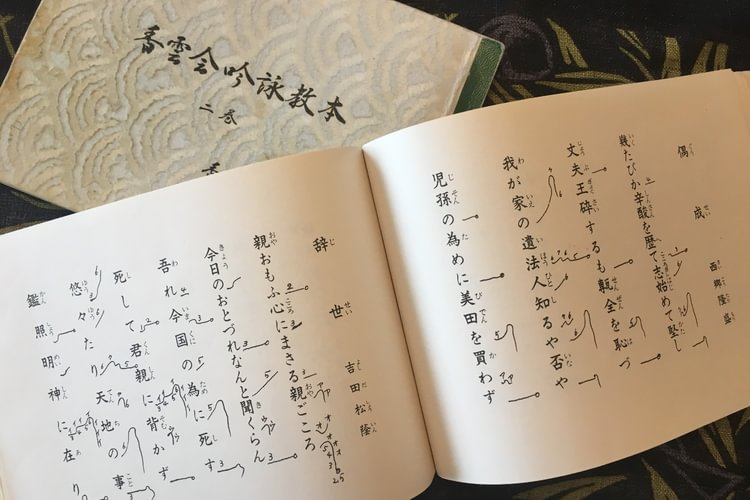 春雲会吟詠教本
偶成
西郷隆盛
幾たびか辛酸を歴て志始めて堅し
丈夫玉碎するも甎全を恥づ
我が家の遺法人知るや否や
児孫の為めに美田を買わず
辞世
吉田松陰
親おもふ心にまさる親ごころ
今日のおとづれなんと聞くらん
吾れ今国の為に死す
死して君親に背かず
悠々たり天地の事
鑑照明神に在り